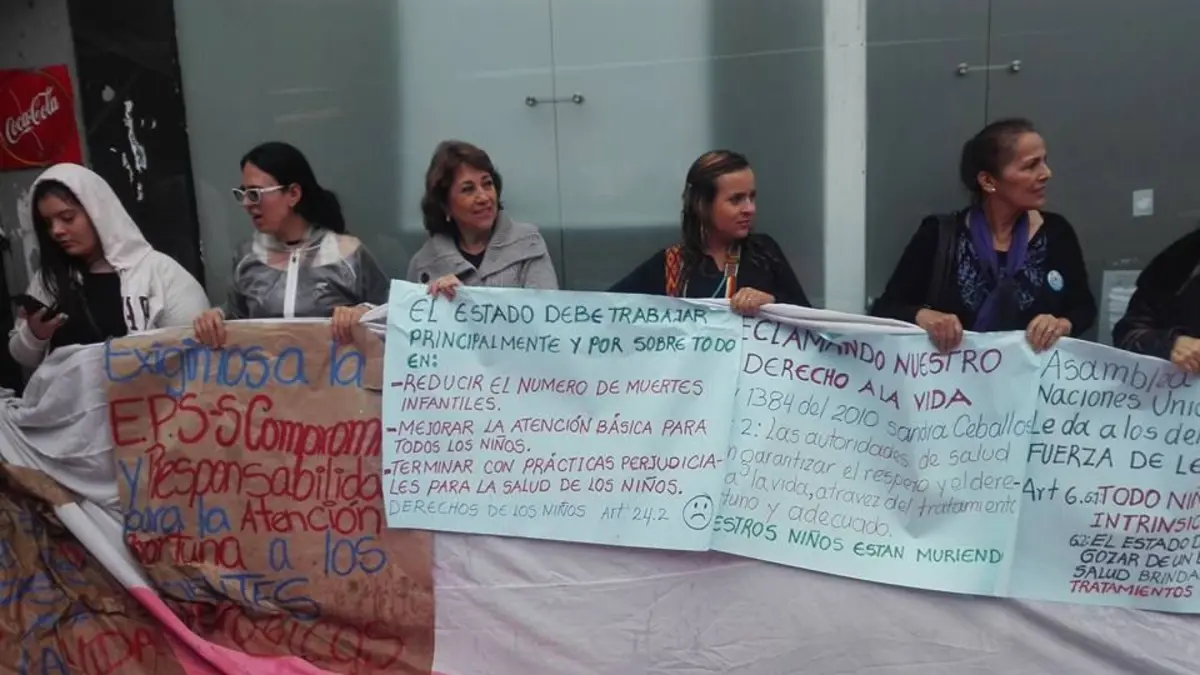 Coca-Cola
Exigimos a la
E.P.S-S Comprom
y Responsabilida
para la Atención
Oportuna a los
VIDA
EL ESTADO DEBE TRABAJAR
PRINCIPALMENTE Y POR SOBRE TODO
EN:
-REDUCIR EL NUMERO DE MUERTES
INFANTILES.
-MEJORAR LA ATENCIÓN BÁSICA PARA
TODOS LOS NIÑOS.
-TERMINAR CON PRÁCTICAS PERJUDICIA-
LES PARA LA SALUD DE LOS NIÑOS.
DERECHOS DE LOS NIÑOS Art 24.2
ECLAMANDO NUESTRO
DERECHO A LA VIDA
1384 del 2010 sandra Ceballos
2: Las autoridades de salud
n garantizar el respeto y el dere-
a la vida, atravez del tratamiento
tuno y adecuado.
ESTROS NIÑOS ESTAN MURIEND
Asamblea
Naciones Uni
Le da a los de
FUERZA DE LE
Art 6.61 TODO NIÑ
INTRINSI
62: EL ESTADO D
GOZAR DE UN
SALUD BRINDA
TRATAMIENTOS